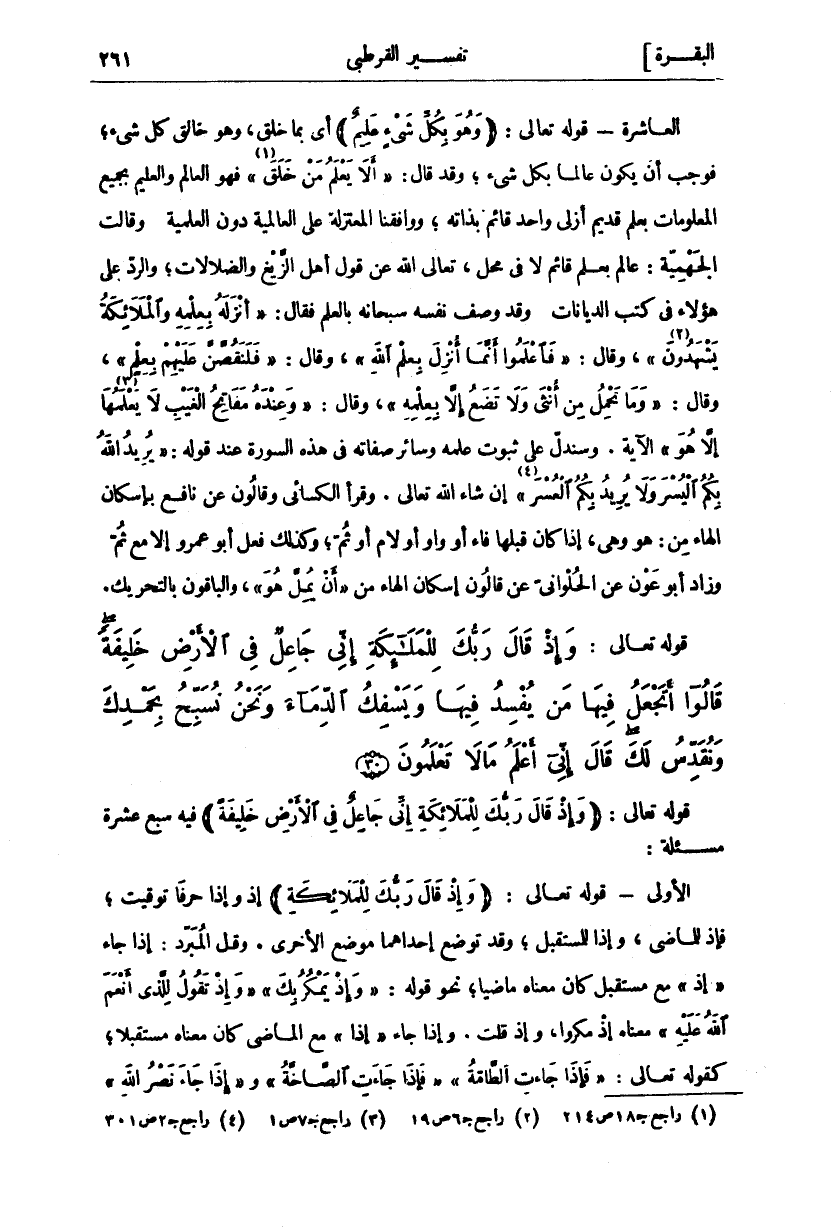 البقـــرة ]
تفســـير القرطبى
٢٦١
العـاشرة — قوله تعالى : ﴿ وَهُوَ بِكُلِّ شَىْءٍ عَلِيمٌ ﴾ أى بما خلق، وهو خالق كل شىء؛
فوجب أن يكون عالمـا بكل شىء ؛ وقد قال: « أَلَا يَعْلَمُ مَنْ خَلَقَ (١) » فهو العالم والعليم بجميع
المعلومات بعلم قديم أزلى واحد قائم بذاته ؛ ووافقنا المعتزلة على العالمية دون العلمية وقالت
الجَهْمِيّة : عالم بعـلم قائم لا فى محل ، تعالى الله عن قول أهل الزَّيْغ والضلالات؛ والردّ على
هؤلاء فى كتب الديانات وقد وصف نفسه سبحانه بالعلم فقال: « أَنْزَلَهُ بِعِلْمِهِ وَٱلْمَلَائِكَةُ
يَشْهَدُونَ (٢) » ، وقال : « فَٱعْلَمُوا أَنَّمَا أُنْزِلَ بِعِلْمِ ٱللهِ » ، وقال : « فَلَنَقُصَّنَّ عَلَيْهِمْ بِعِلْمٍ » ،
وقال : « وَمَا تَحْمِلُ مِن أُنْثَى وَلَا تَضَعُ إِلَّا بِعِلْمِهِ »، وقال : « وَعِنْدَهُ مَفَاتِحُ (٣) الْغَيْبِ لَا يَعْلَمُهَا
إِلَّا هُوَ » الآية . وسندلّ على ثبوت علمه وسائر صفاته فى هذه السورة عند قوله :« يُرِيدُ اللهُ
بِكُمُ ٱلْيُسْرَ وَلَا يُرِيدُ بِكُمُ ٱلْعُسْرَ (٤) » إن شاء الله تعالى . وقرأ الكسائى وقالُون عن نافـع بإسكان
الهاء من: هو وهى، إذا كان قبلها فاء أو واو أو لام أو ثُمّ؛ وكذلك فعل أبو عمرو إلا مع ثُمّ
وزاد أبو عَوْن عن الحُلْوانىّ عن قالُون إسكان الهاء من «أَنْ يُمِلَّ هُوَ»، والباقون بالتحريك.
قوله تعـالى : وَإِذْ قَالَ رَبُّكَ لِلْمَلَـٰٓئِكَةِ إِنِّى جَاعِلٌ فِى ٱلْأَرْضِ خَلِيفَةً ۖ
قَالُوٓا أَتَجْعَلُ فِيهَا مَن يُفْسِدُ فِيهَا وَيَسْفِكُ ٱلدِّمَآءَ وَنَحْنُ نُسَبِّحُ بِحَمْدِكَ
وَنُقَدِّسُ لَكَ ۖ قَالَ إِنِّىٓ أَعْلَمُ مَالَا تَعْلَمُونَ ﴿٣٠﴾
قوله تعالى : ﴿ وَإِذْ قَالَ رَبُّكَ لِلْمَلَائِكَةِ إِنِّى جَاعِلٌ فِى ٱلْأَرْضِ خَلِيفَةً ﴾ فيه سبع عشرة
مســـئلة :
الأولى — قوله تعـالى : ﴿ وَإِذْ قَالَ رَبُّكَ لِلْمَلَائِكَةِ ﴾ إذ وإذا حرفَا توقيت ؛
فإذ للـاضى ، وإذا للستقبل ؛ وقد توضع إحداهما موضع الأخرى . وقـل المُبَرّد : إذا جاء
« إذ » مع مستقبل كان معناه ماضيا؛ نحو قوله : « وَإِذْ يَمْكُرُ بِكَ » « وَإِذْ تَقُولُ لِلَّذى أَنْعَمَ
ٱللهُ عَلَيْهِ » معناه إذْ مكروا، وإذ قلت . وإذا جاء « إذا » مع المـاضى كان معناه مستقبلا؛
كقوله تعـالى : « فَإِذَا جَاءتِ الطَّاقةُ » « فَإِذَا جَاءَتِ ٱلصَّـاخَّةُ » و « إِذَا جَاءَ نَصْرُ اللهِ »
(١) راجع جـ١٨ص٢١٤ (٢) راجع جـ٦ص١٩ (٣) راجع جـ٧ص١ (٤) راجع جـ٢ص٣٠١